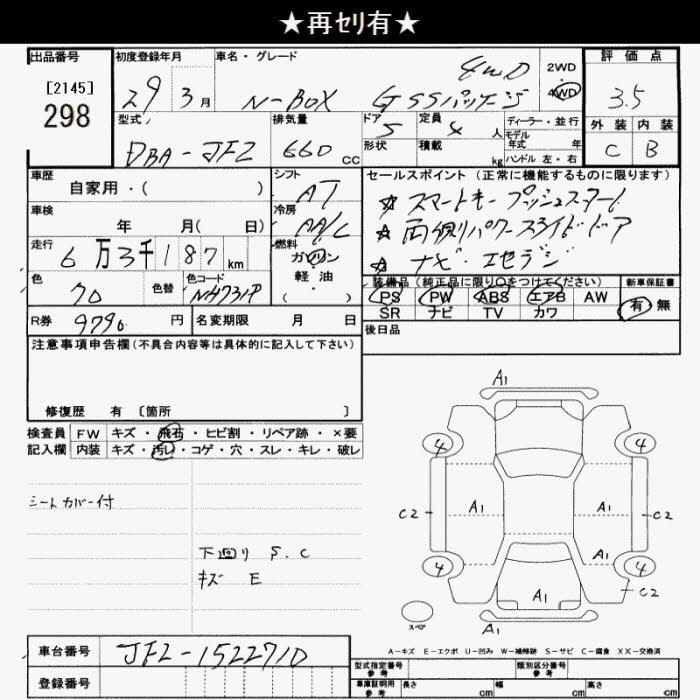 ★再セリ有★
出品番号
[2145]
298
初度登録年月
29 3月
車名・グレード
N-BOX G SSパッケージ 4WD
2WD
4WD
評価点
3.5
外装 内装
C B
型式
DBA-JF2
排気量
660 cc
ドア
5
形状
定員
4 人
積載
kg
ディーラー・並行
モデル
年式 年
ハンドル 左・右
車歴
自家用・( )
車検
年 月( 日)
走行
6万3千187km
色
クロ
色替
色コード
NH731P
シフト
AT
冷房
AA/C
燃料
ガソリン
軽油
( )
セールスポイント (正常に機能するものに限ります)
☆ スマートキー プッシュスタート
☆ 両側パワースライドドア
☆ ナビ・
装備品 (純正品に限り○をつけてください)
PS PW ABS エアB AW
SR ナビ TV カワ
新車保証書
有 無
R券 9790 円
名変期限 月 日
後日品
注意事項申告欄 (不具合内容等は具体的に記入して下さい)
修復歴 有 [箇所 ]
検査員
記入欄
FW キズ・飛石・ヒビ割・リペア跡・×要
内装 キズ・汚レ・コゲ・穴・スレ・キレ・破レ
シートカバー付
下回り S.C
キズ E
A1
4 4
C2 A1 A1 C2
A1
4 4
C2
A1
スペア
A1
A-キズ E-エクボ U-凹み W-補修跡 S-サビ C-腐食 XX-交換済
車台番号
JF2-1522710
登録番号
型式指定番号
参考
類別区分番号
参考
車庫証明用
参考
長さ cm 幅 cm 高さ cm